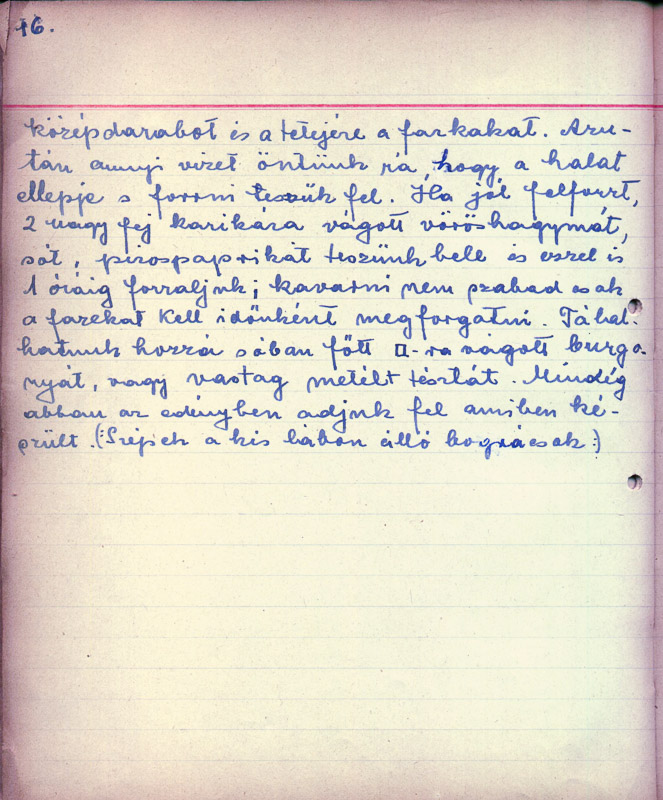 16.
középdarabot és a tetejére a farkakat. Azu-
tán annyi vizet öntünk rá, hogy a halat
ellepje s forrni tesszük fel. Ha jól felforrt,
2 nagy fej karikára vágott vöröshagymát,
sót, pirospaprikát teszünk bele és ezzel is
1 óráig forraljuk; kavarni nem szabad csak
a fazekat kell időnként megforgatni. Tálal-
hatunk hozzá sóban főtt □-ra vágott burgo-
nyát, vagy vastag metélt tésztát. Mindég
abban az edényben adjuk fel amiben ké-
szült. (:Szépek a kis lábon álló bográcsok:)